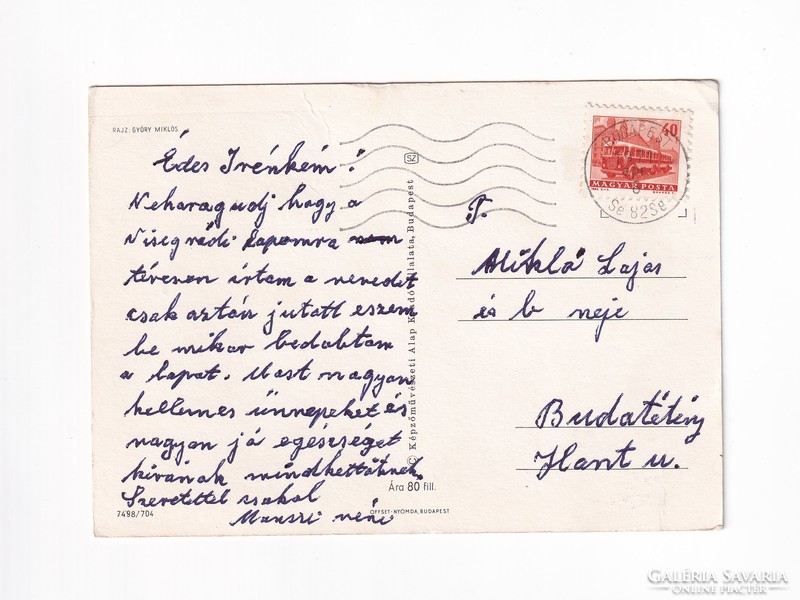 RAJZ: GYŐRY MIKLÓS
Édes Irénkém!
Neharagudj hogy a
Visegrádi lapomra
tévesen írtam a nevedet
csak aztán jutott eszem
be mikor bedobtam
a lapot. Most nagyon
kellemes ünnepeket és
nagyon jó egészséget
kívánok mindkettőtöknek
Szeretettel csokol
néni
7498/704
SZ
© Képzőművészeti Alap Kiadóvállalata, Budapest
Ára 80 fill.
OFFSET-NYOMDA, BUDAPEST
40
MAGYAR POSTA
BUDAPEST
82
T.
Mikló Lajos
és b neje
Budatétény
Hant u.
GALÉRIA SAVARIA
ONLINE PIACTÉR